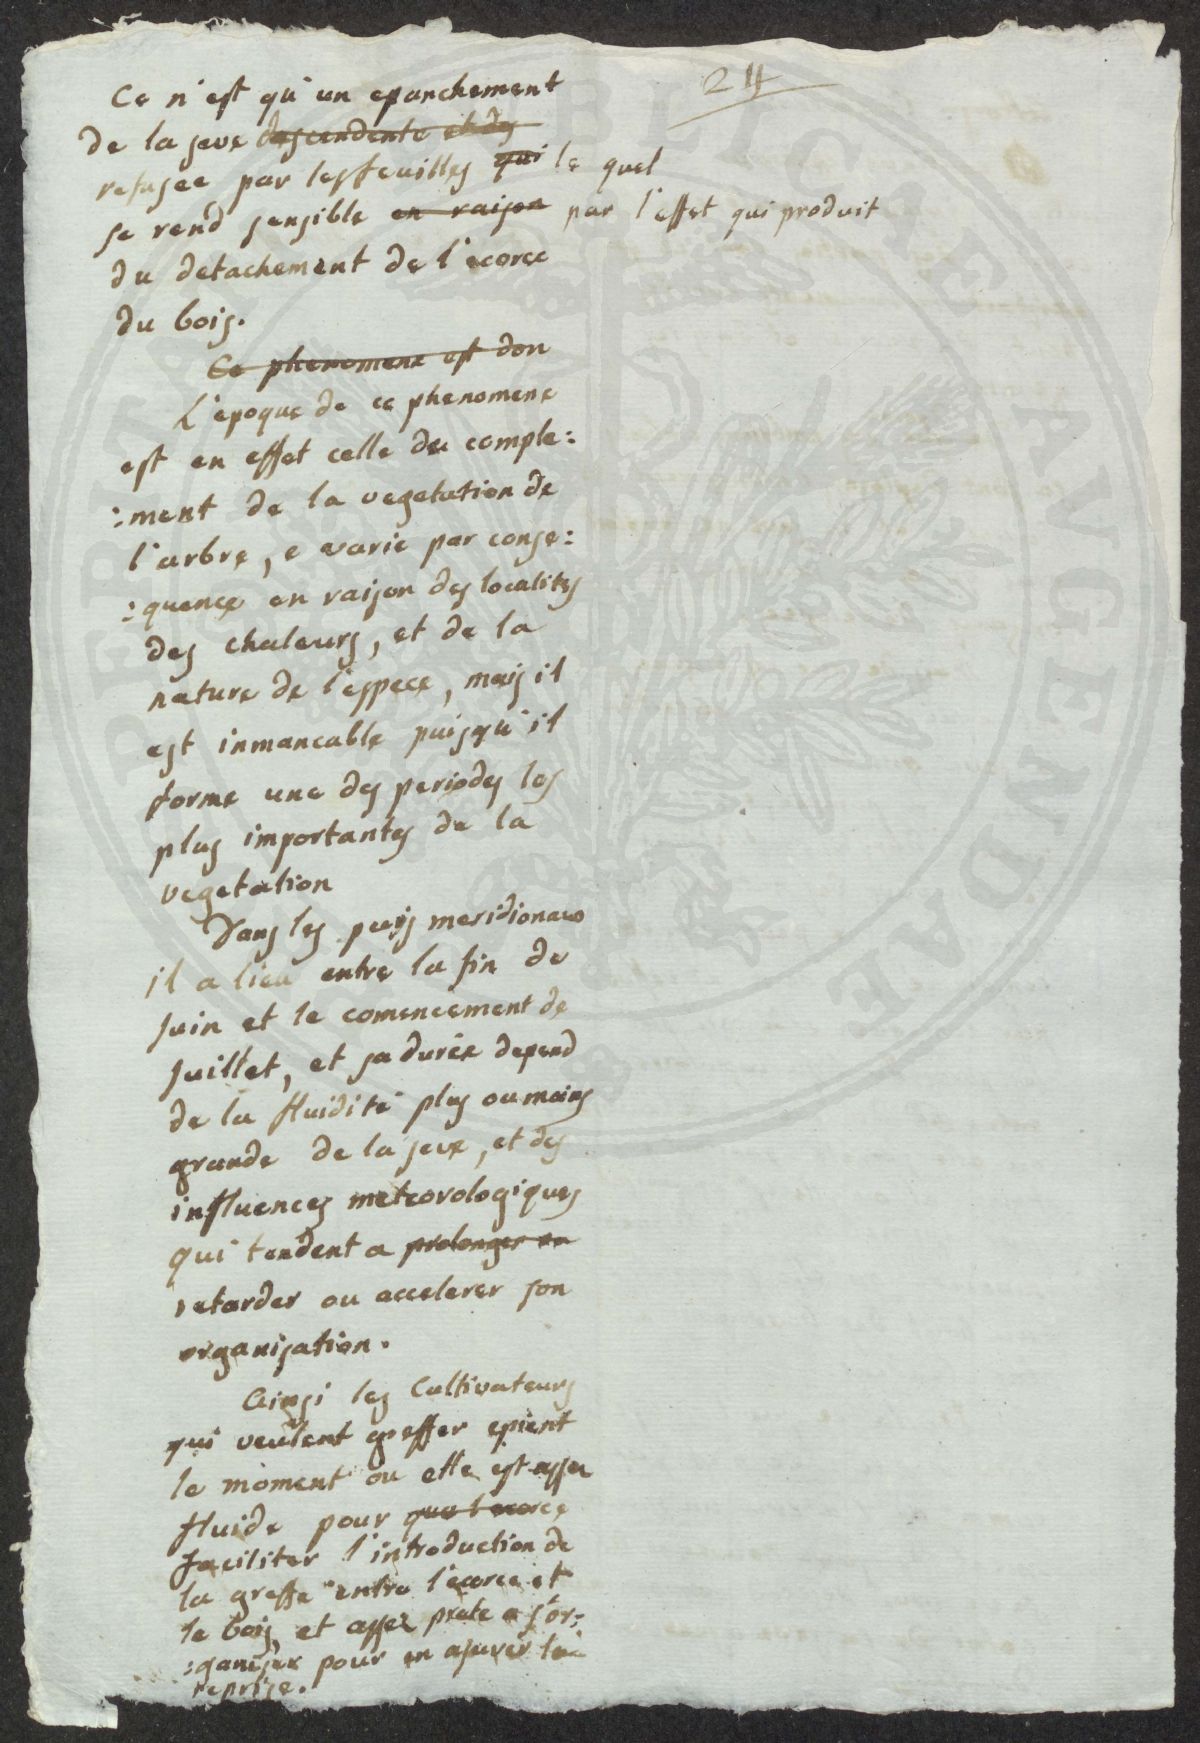 24
Ce n'est qu'un epanchement
de la seve descendente et des
refusee par les feuilles qui le quel
se rend sensible en raison par l'effet qui produit
du detachement de l'ecorce
du bois.
Ce phenomene est don
L'epoque de ce phenomene
est en effet celle du comple:
:ment de la vegetation de
l'arbre, e varie par conse:
:quence en raison des localites
des chaleurs, et de la
nature de l'espece, mais il
est inmancable puisqu'il
forme une des periodes les
plus importantes de la
vegetation
Dans les pays meridionaux
il a lieu entre la fin de
Juin et le comencement de
Juillet, et sa durée depend
de la fluidité plus ou moins
grande de la seve, et des
influences meteorologiques
qui tendent a prolonger ou
retarder ou accelerer son
organisation.
Ainsi les Cultivateurs
qui veulent greffer epient
le moment ou elle est assez
fluide pour que l'ecorce
faciliter l'introduction de
la greffe entre l'ecorce et
le bois, et assez prete a s'or:
:ganiser pour en assurer la
reprise.